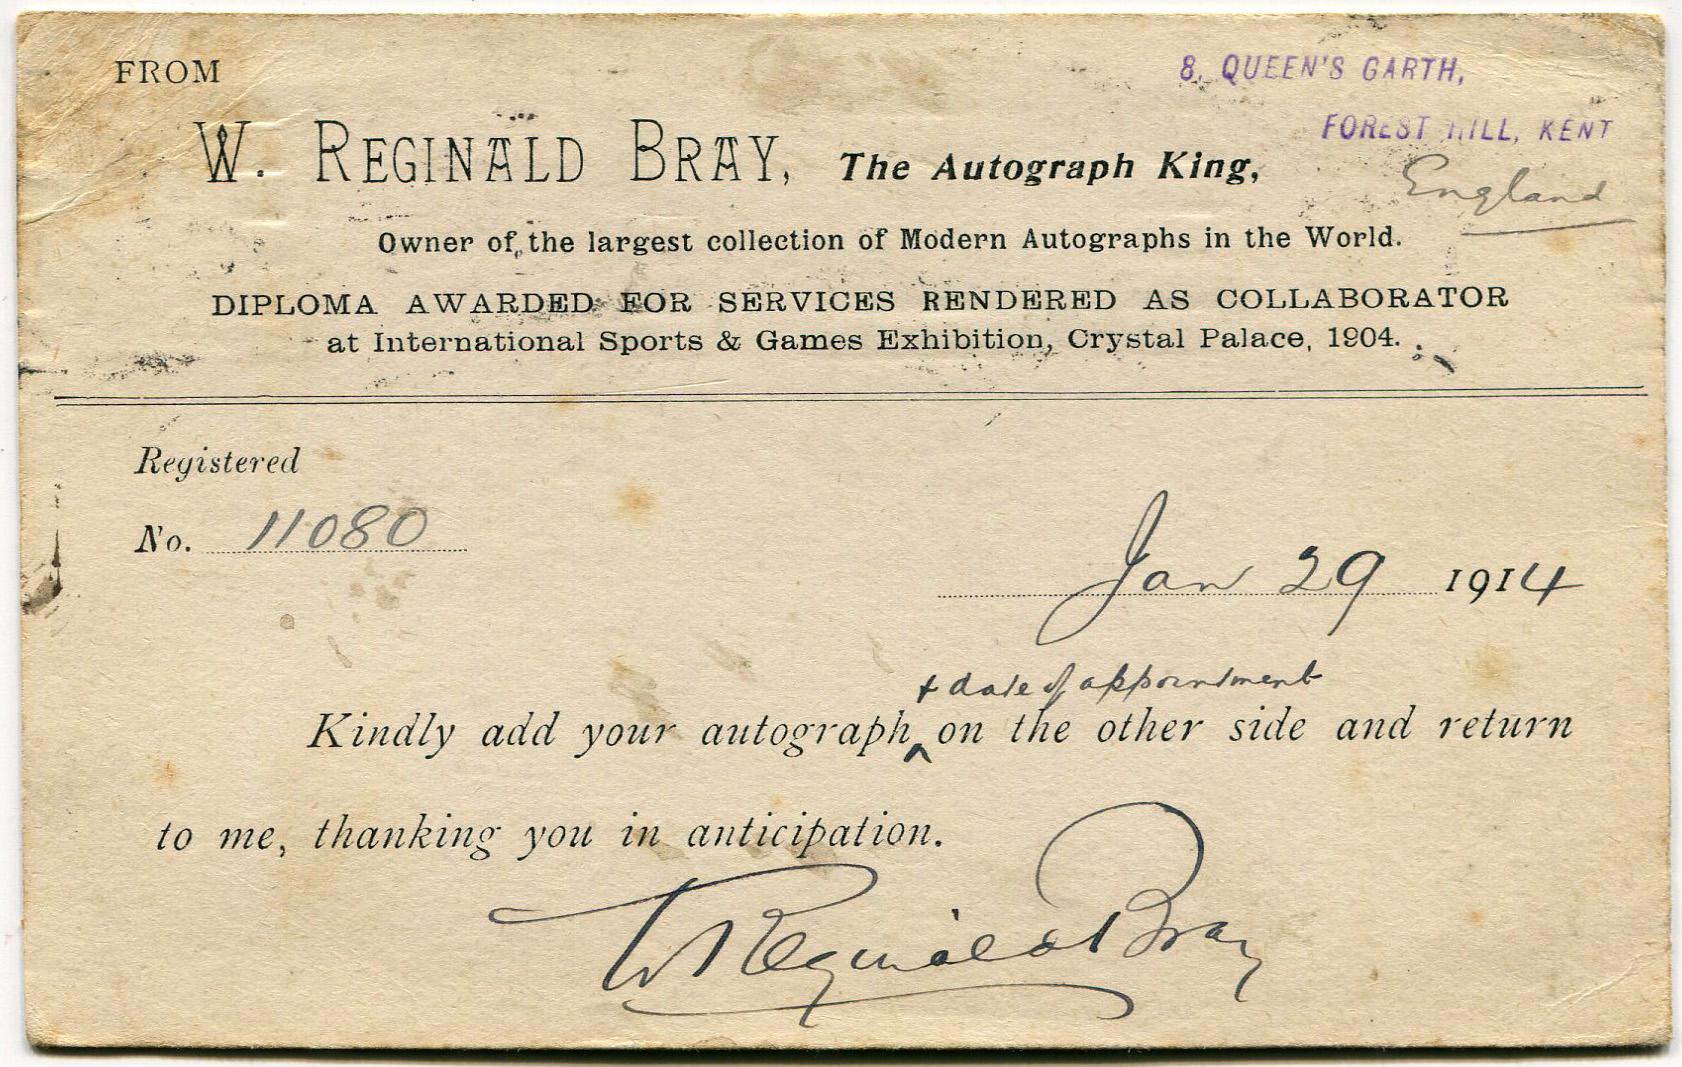 FROM
8, QUEEN'S GARTH,
FOREST HILL, KENT
England
W. REGINALD BRAY, The Autograph King,
Owner of the largest collection of Modern Autographs in the World.
DIPLOMA AWARDED FOR SERVICES RENDERED AS COLLABORATOR
at International Sports & Games Exhibition, Crystal Palace, 1904.
Registered
No. 11080
Jan 29 1914
+ date of appointment
Kindly add your autograph ^ on the other side and return
to me, thanking you in anticipation.
W Reginald Bray